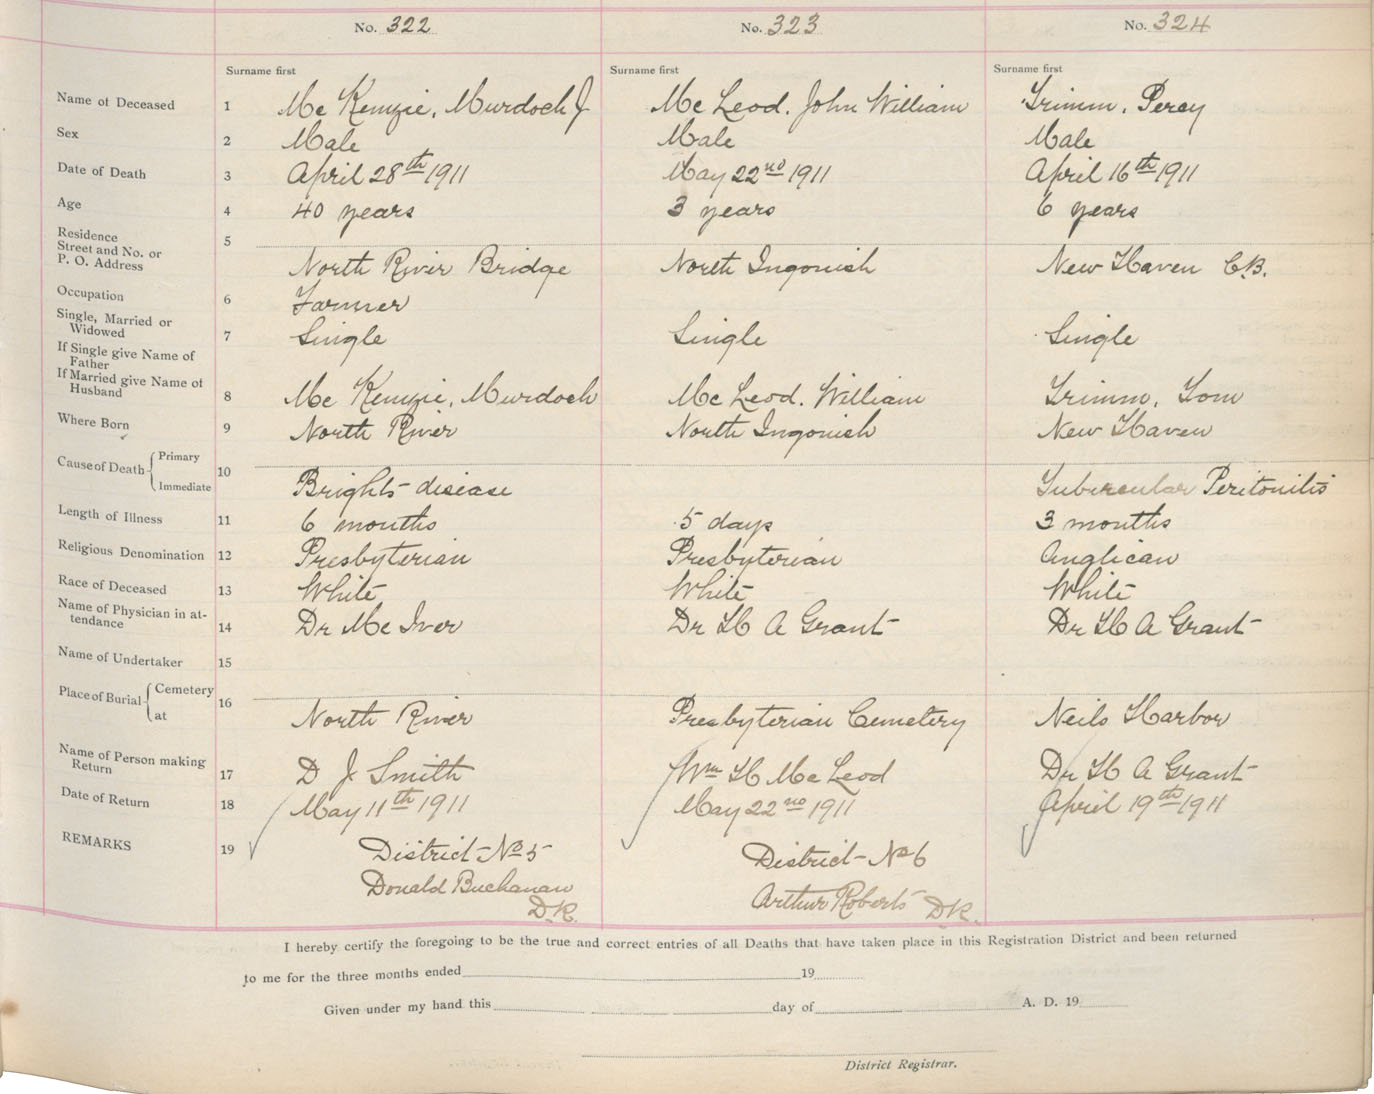 No. 322 No. 323 No. 324
Surname first Surname first Surname first
Name of Deceased 1 Mc Kenzie, Murdoch J Mc Leod. John William Grimm, Percy
Sex 2 Male Male Male
Date of Death 3 April 28th 1911 May 22nd 1911 April 16th 1911
Age 4 40 years 3 years 6 years
Residence
Street and No. or
P. O. Address 5 North River Bridge North Ingonish New Haven C.B.
Occupation 6 Farmer
Single, Married or
Widowed 7 Single Single Single
If Single give Name of
Father
If Married give Name of
Husband 8 Mc Kenzie, Murdoch Mc Leod. William Grimm, Tom
Where Born 9 North River North Ingonish New Haven
Cause of Death Primary
Immediate 10 Brights disease Tubercular Peritonitis
Length of Illness 11 6 months 5 days 3 months
Religious Denomination 12 Presbyterian Presbyterian Anglican
Race of Deceased 13 White White White
Name of Physician in at-
tendance 14 Dr Mc Iver Dr H A Grant Dr H A Grant
Name of Undertaker 15
Place of Burial Cemetery
at 16 North River Presbyterian Cemetery Neils Harbor
Name of Person making
Return 17 D J Smith Wm H Mc Leod Dr H A Grant
Date of Return 18 May 11th 1911 May 22nd 1911 April 19th 1911
REMARKS 19 District No 5 District No 6
Donald Buchanan Arthur Roberts
D.R. D.R.
I hereby certify the foregoing to be the true and correct entries of all Deaths that have taken place in this Registration District and been returned
to me for the three months ended 19
Given under my hand this day of A. D. 19
District Registrar.